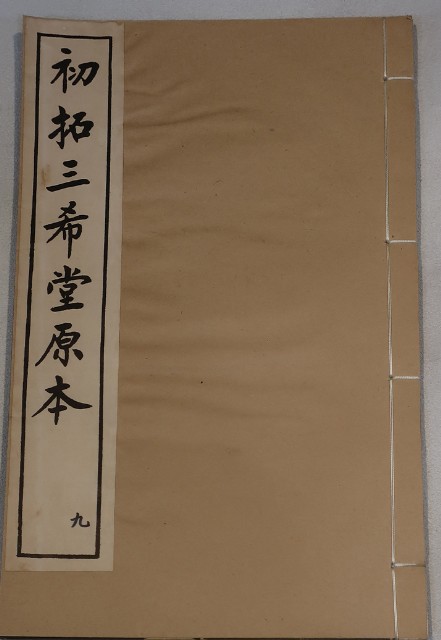 初拓三希堂原本
九